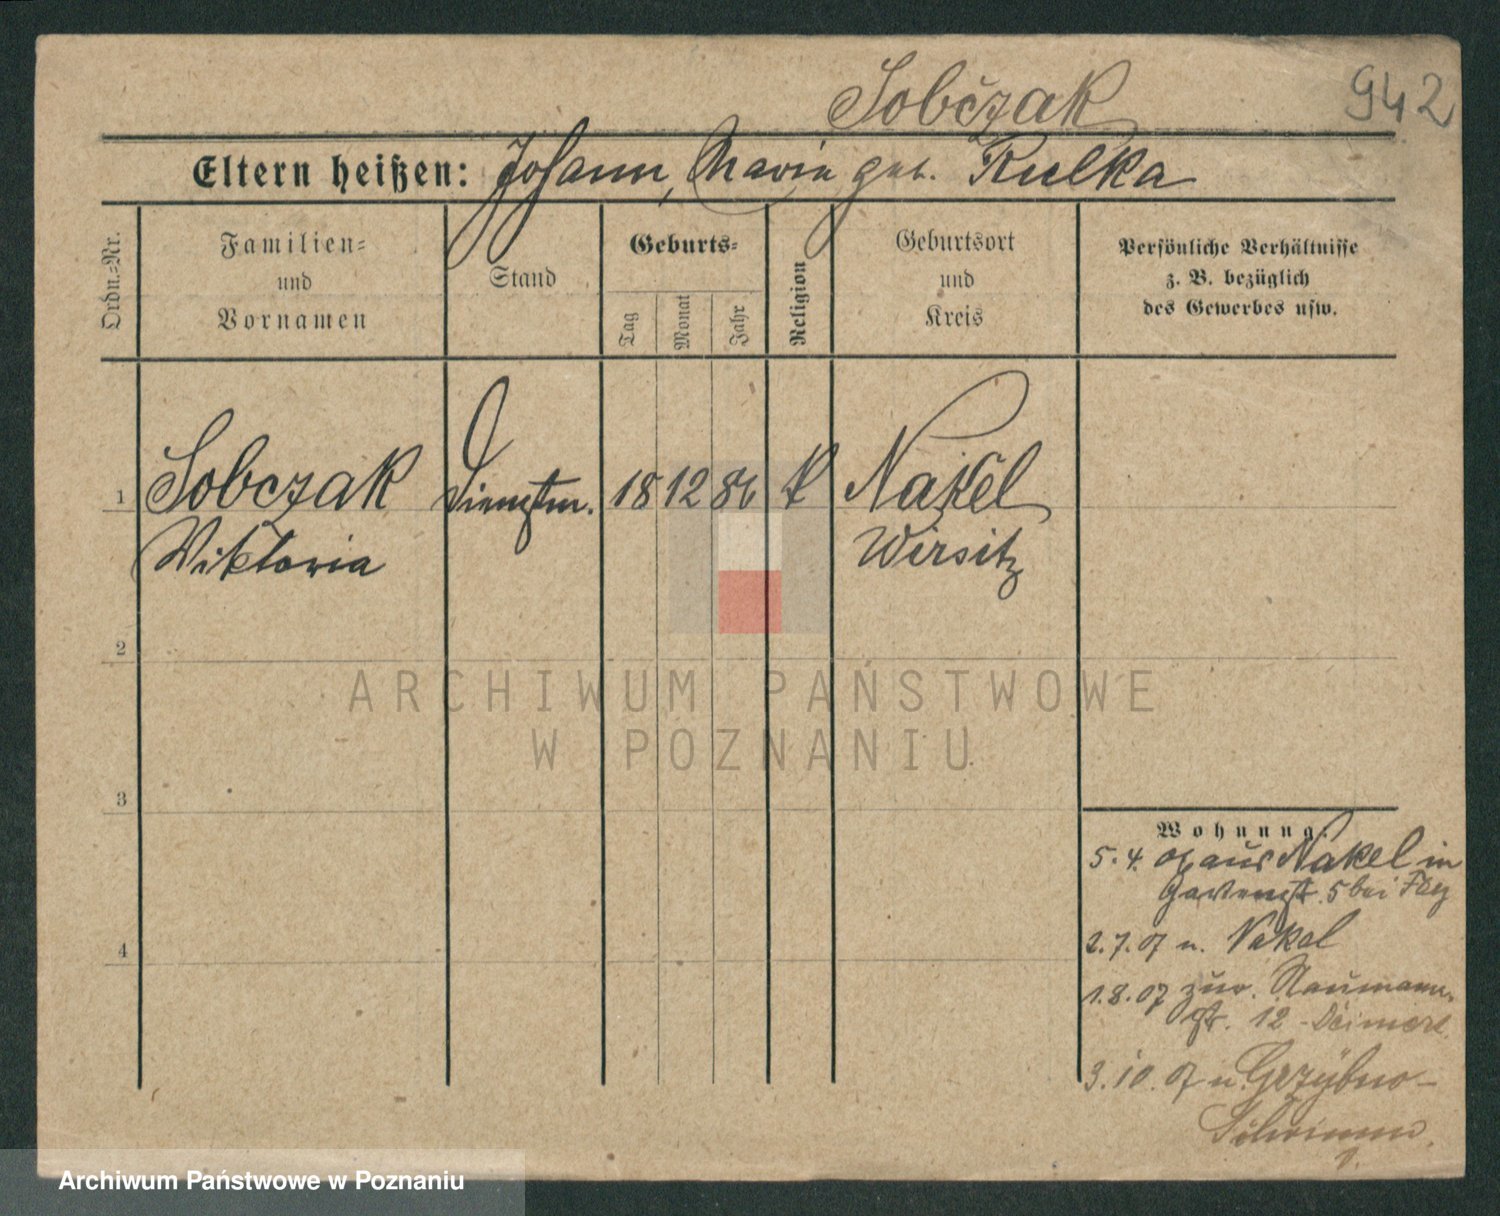 Sobczak
942
Eltern heißen: Johann, Maria geb. Kulka
Ordn.-Nr.
Familien-
und
Vornamen
Stand
Geburts-
Tag
Monat
Jahr
Religion
Geburtsort
und
Kreis
Persönliche Verhältnisse
z. B. bezüglich
des Gewerbes usw.
1 Sobczak Dienstm. 18 12 86 K Nakel
Viktoria Wirsitz
2
3
4
Wohnung.
5. 4. 07 aus Nakel in
Gartenstr. 5 bei
2. 7. 07 n. Nakel
1. 8. 07 zur. Naumann-
str. 12 -
3. 10. 07 n. Grzybno-
Schrimm.
ARCHIWUM PAŃSTWOWE
W POZNANIU
Archiwum Państwowe w Poznaniu